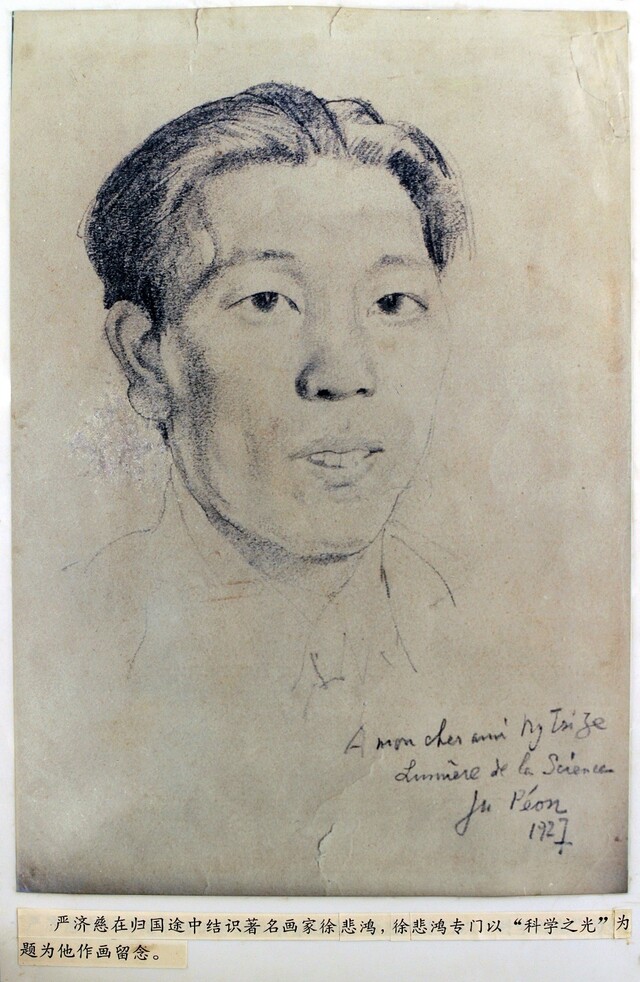 A mon cher ami Ny Tsi Ze
Lumière de la Science
Ju Péon
1927
严济慈在归国途中结识著名画家徐悲鸿，徐悲鸿专门以“科学之光”为
题为他作画留念。